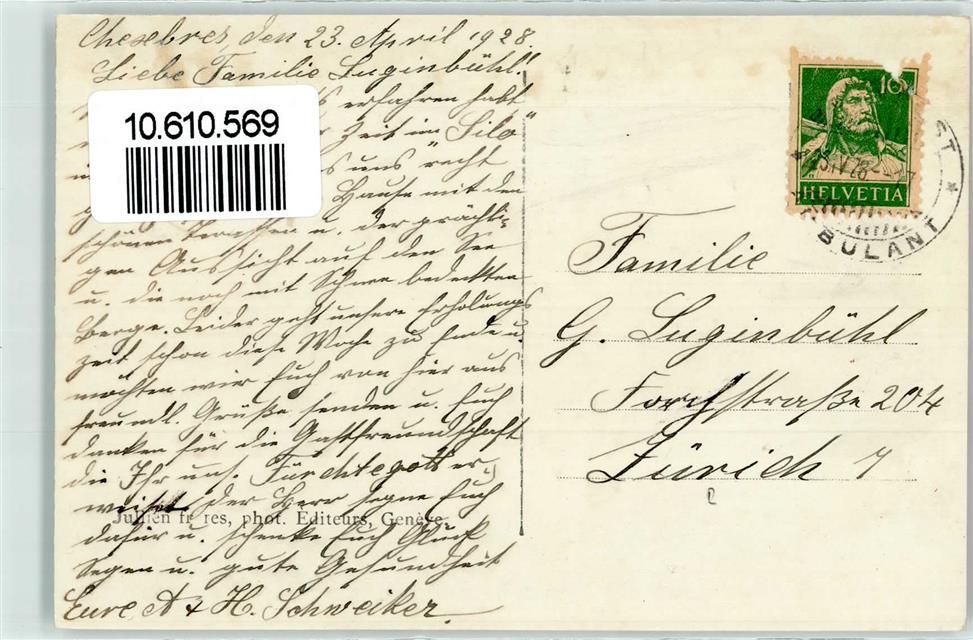 Chexbres, den 23. April 1928.
Liebe Familie Luginbühl!
erfahren habt
Zeit im „Silo"
uns recht
Hause mit den
schönen u. der prächti-
gen Aussicht auf den See
u. die noch mit Schnee bedeckten
Berge. Leider geht unsere Erholungs
zeit schon diese Woche zu Ende u.
möchten wir Euch von hier aus
freundl. Grüße senden u. Euch
danken für die Gastfreundschaft
die Ihr uns. Fürchtegott er-
weiset. Der Herr segne Euch
dafür u. schenke Euch Glück
Segen u. gute Gesundheit
Eure A & H. Schweiker.
10.610.569
Jullien fr res, phot. Editeurs, Genève.
10
HELVETIA
BULANT
Familie
G. Luginbühl
Forchstraße 204
Zürich 7